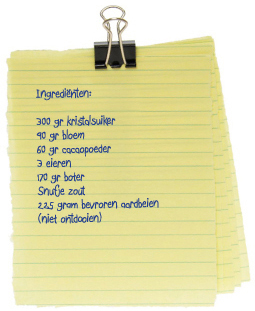 Ingrediënten:
300 gr kristalsuiker
90 gr bloem
60 gr cacaopoeder
3 eieren
170 gr boter
Snufje zout
225 gram bevroren aardbeien
(niet ontdooien)